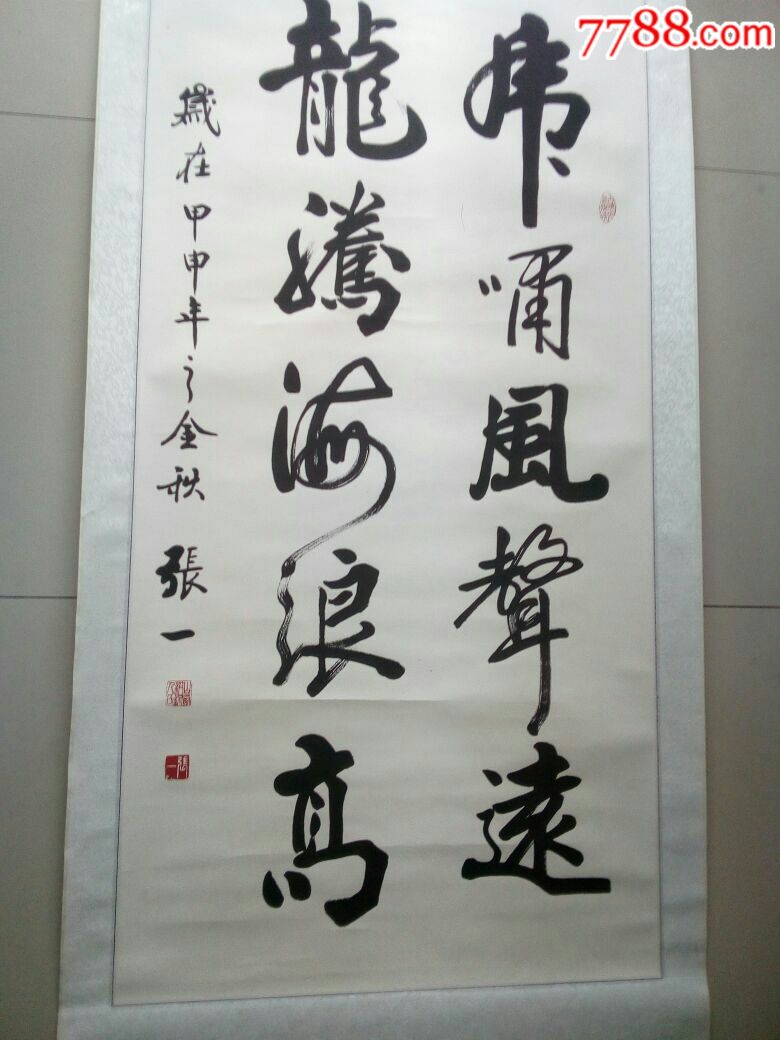 7788.com
虎啸風聲遠
龍騰海浪高
歲在甲申年之金秋 張一
張一